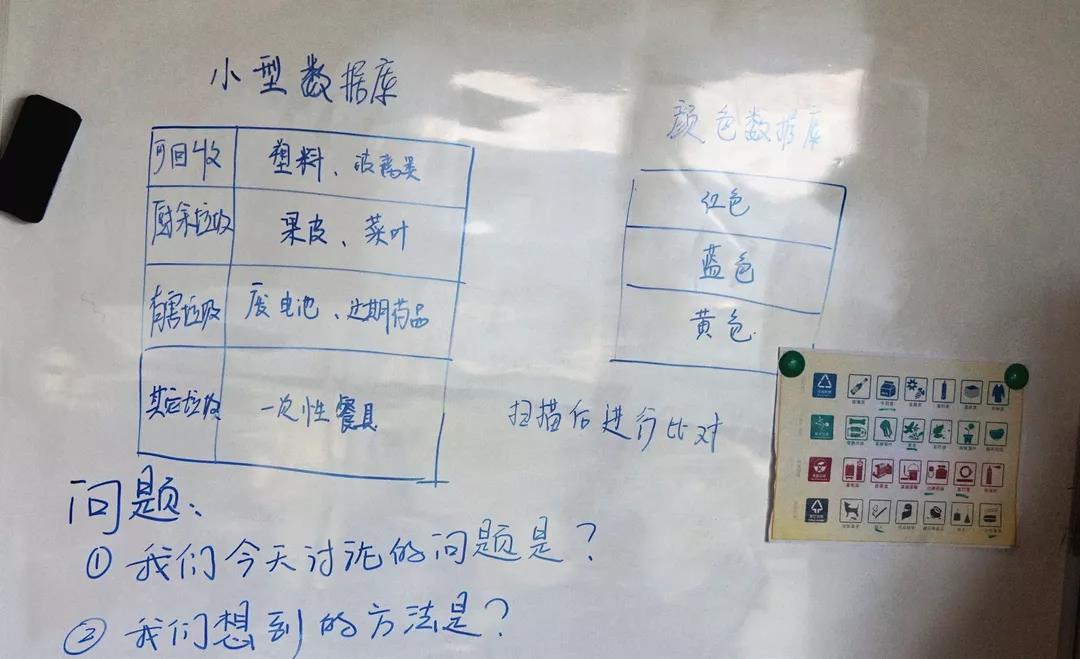 小型数据库
可回收 塑料、玻璃类
厨余垃圾 果皮、菜叶
有害垃圾 废电池、过期药品
其它垃圾 一次性餐具
颜色数据库
红色
蓝色
黄色
扫描后进行比对
问题:
① 我们今天讨论的问题是?
② 我们想到的方法是?